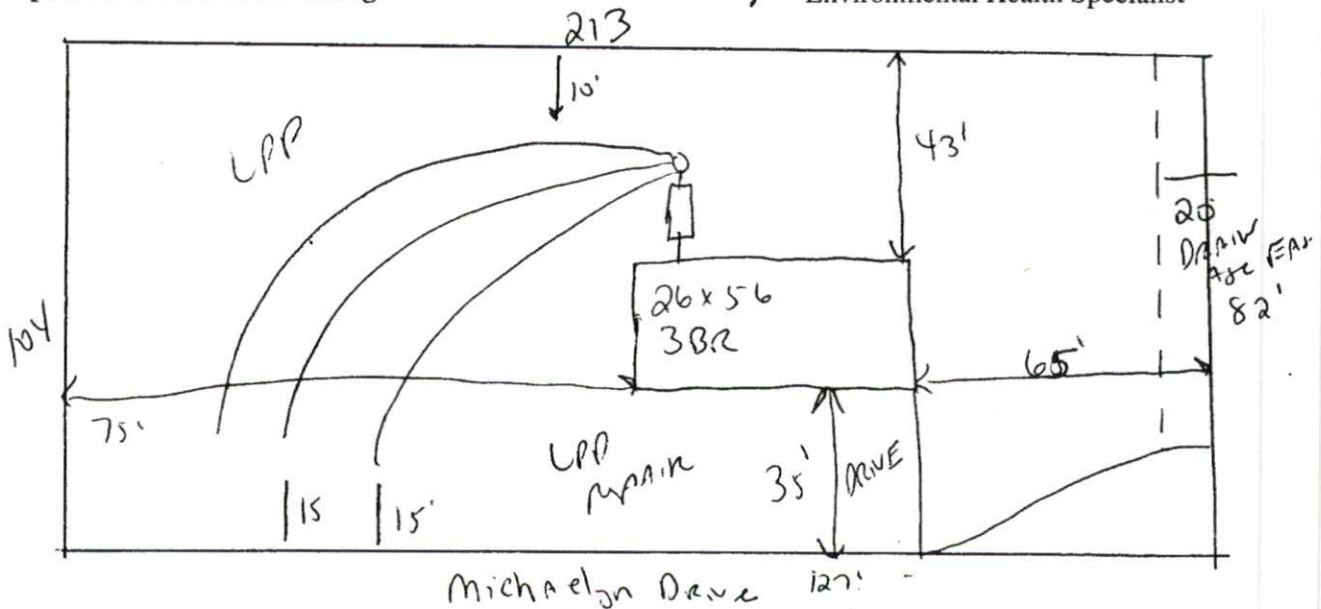 Environmental Health Specialist
213
10'
LPP
43'
20
DRAIN
AGE EAS.
82'
104
26 x 56
3BR
65'
75'
LPP
REPAIR
35'
DRIVE
15
15'
Michaelyn Drive 127'